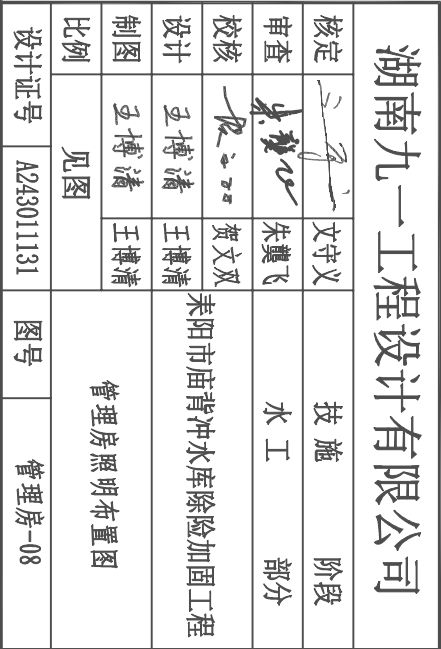 湖南九一工程设计有限公司
核定 文守义 技施 阶段
审查 朱龑飞 水工 部分
校核 贺文双 耒阳市庙背冲水库除险加固工程
设计 王博清 王博清
制图 王博清 王博清 管理房照明布置图
比例 见图
设计证号 A243011131 图号 管理房-08